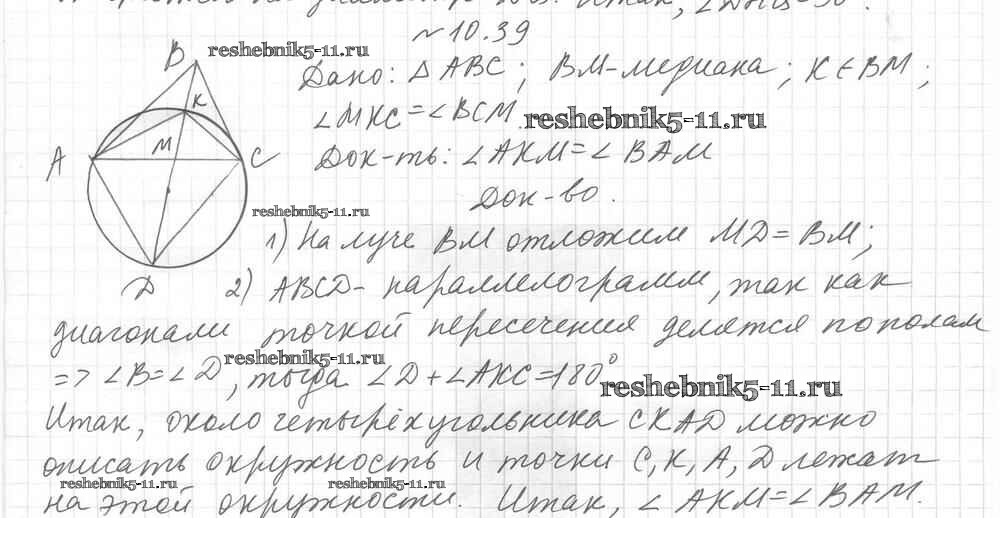 ~ 10.39
B reshebnik5-11.ru
Дано: △ ABC; BM-медиана; K ∈ BM;
K
∠MKC = ∠BCM. reshebnik5-11.ru
M
A C
Док-ть: ∠AKM = ∠BAM
Док-во.
reshebnik5-11.ru
1) На луче BM отложим MD = BM;
D
2) ABCD - параллелограмм, так как
диагонали точкой пересечения делятся пополам
reshebnik5-11.ru
=> ∠B = ∠D, тогда ∠D + ∠AKC = 180°
reshebnik5-11.ru
Итак, около четырёхугольника CKAD можно
описать окружность и точки C, K, A, D лежат
reshebnik5-11.ru reshebnik5-11.ru
на этой окружности. Итак, ∠AKM = ∠BAM.